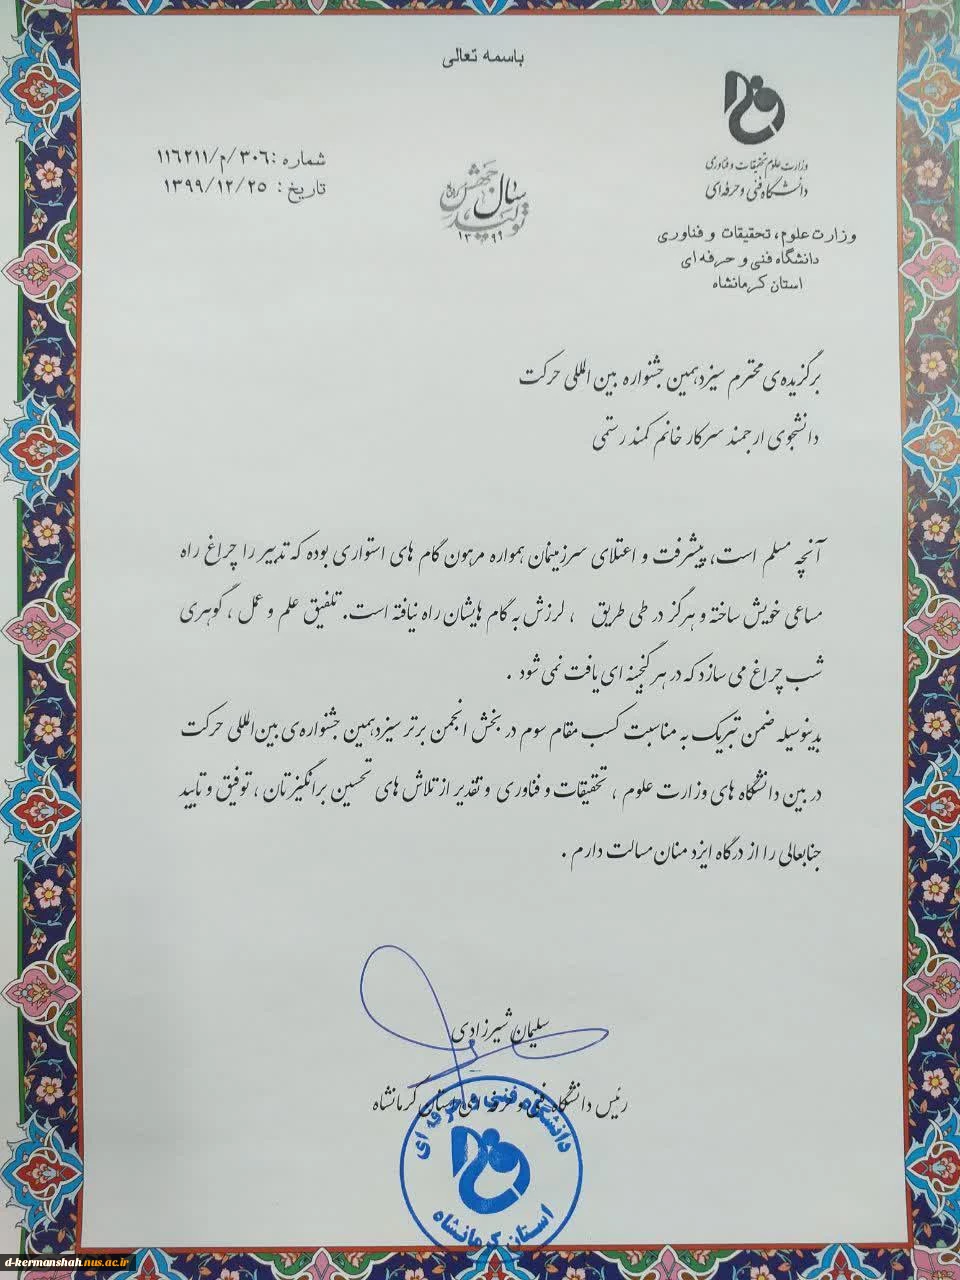 باسمه تعالی
وزارت علوم تحقیقات و فناوری
دانشگاه فنی و حرفه‌ای
وزارت علوم، تحقیقات و فناوری
دانشگاه فنی و حرفه ای
استان کرمانشاه
سال جهش تولید
۱۳۹۹
شماره :۳۰۶/م/۱۱۶۲۱۱
تاریخ : ۱۳۹۹/۱۲/۲۵
برگزیده‌ی محترم سیزدهمین جشنواره بین المللی حرکت
دانشجوی ارجمند سرکار خانم کمند رستمی
آنچه مسلم است، پیشرفت و اعتلای سرزمینمان همواره مرهون گام های استواری بوده که تدبیر را چراغ راه
مساعی خویش ساخته و هرگز در طی طریق ، لرزش به گام هایشان راه نیافته است. تلفیق علم و عمل ، گوهری
شب چراغ می سازد که در هر گنجینه ای یافت نمی شود .
بدینوسیله ضمن تبریک به مناسبت کسب مقام سوم در بخش انجمن برتر سیزدهمین جشنواره‌ی بین‌المللی حرکت
در بین دانشگاه های وزارت علوم ، تحقیقات و فناوری و تقدیر از تلاش های تحسین برانگیزتان ، توفیق و تایید
جنابعالی را از درگاه ایزد منان مسالت دارم .
سلیمان شیرزادی
رئیس دانشگاه فنی و حرفه ای استان کرمانشاه
دانشگاه فنی و حرفه ای
استان کرمانشاه
d-kermanshah.nus.ac.ir